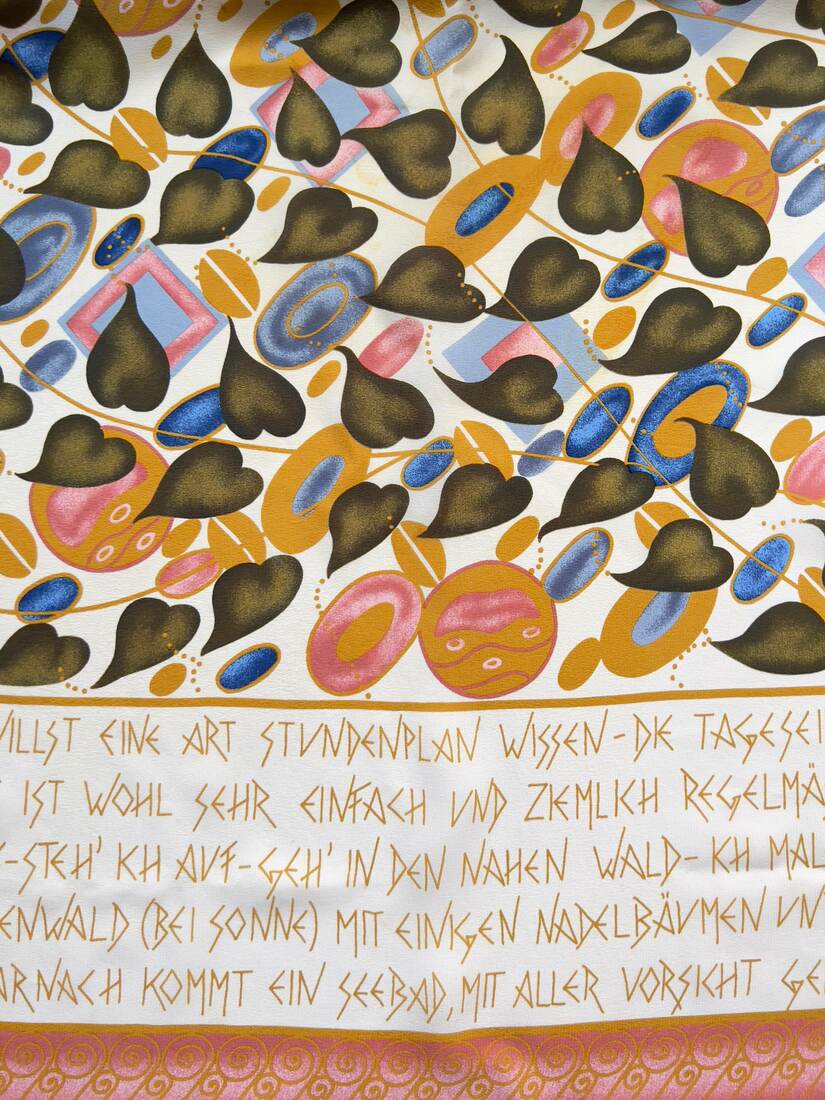 WILLST EINE ART STUNDENPLAN WISSEN - DIE TAGESEI
IST WOHL SEHR EINFACH UND ZIEMLICH REGELMÄ
-STEH' ICH AUF-GEH' IN DEN NAHEN WALD- ICH MAL
ENWALD (BEI SONNE) MIT EINIGEN NADELBÄUMEN UN
ARNACH KOMMT EIN SEEBAD, MIT ALLER VORSICHT GE